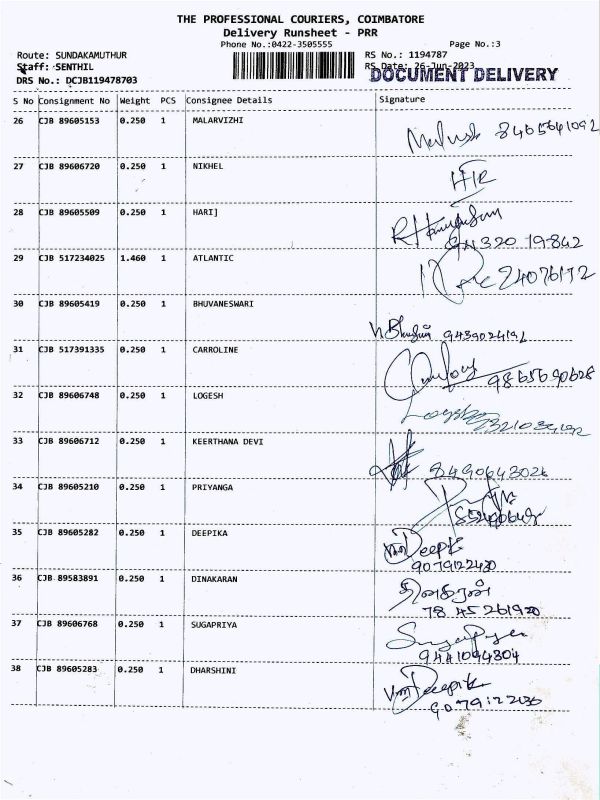 THE PROFESSIONAL COURIERS, COIMBATORE
Delivery Runsheet - PRR
Phone No.:0422-3505555 Page No.:3
Route: SUNDAKAMUTHUR RS No.: 1194787
Staff: SENTHIL RS Date: 26-Jun-2023
DOCUMENT DELIVERY
DRS No.: DCJB119478703
S No Consignment No Weight PCS Consignee Details Signature
26 CJB 89605153 0.250 1 MALARVIZHI
27 CJB 89606720 0.250 1 NIKHEL
28 CJB 89605509 0.250 1 HARI]
29 CJB 517234025 1.460 1 ATLANTIC
30 CJB 89605419 0.250 1 BHUVANESWARI
31 CJB 517391335 0.250 1 CARROLINE
32 CJB 89606748 0.250 1 LOGESH
33 CJB 89606712 0.250 1 KEERTHANA DEVI
8490643026
34 CJB 89605210 0.250 1 PRIYANGA
35 CJB 89605282 0.250 1 DEEPIKA
9079122430
36 CJB 89583891 0.250 1 DINAKARAN தினகரன்
7845261920
37 CJB 89606768 0.250 1 SUGAPRIYA
9441094304
38 CJB 89605283 0.250 1 DHARSHINI